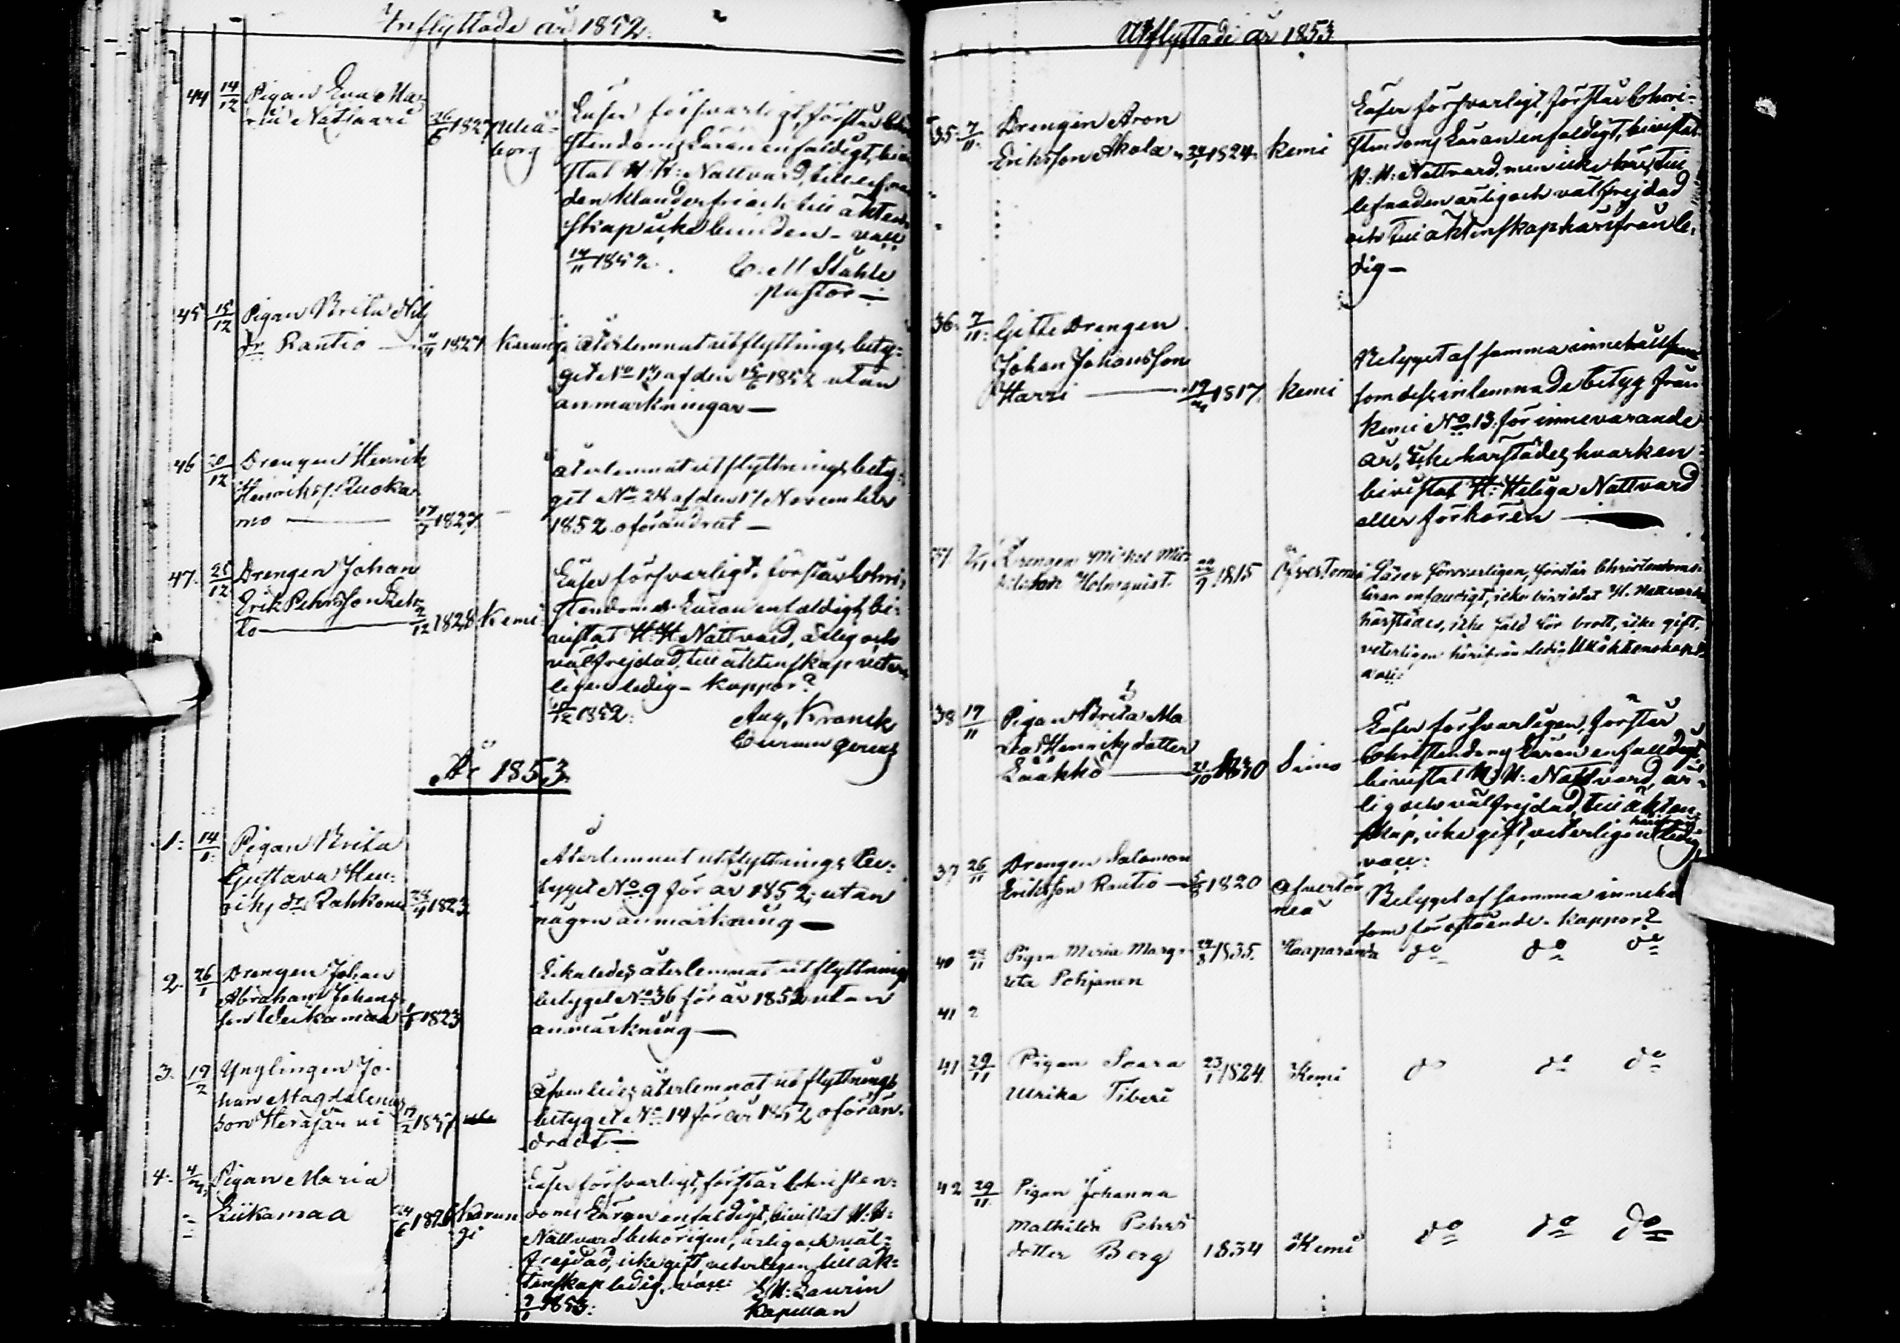 Inflyttade år 1852.
44 14/12 Pigan Eva Ma-
ria Natsaari 26/6 1827 Uleå-
borg
Läser försvarligt, förstår Chri-
stendoms Läran enfaldigt, bivi-
stat H. H. Nattvard, till lefna-
den klanderfri och till äkten-
skap icke bunden - vacc.
14/11 1852. C. M. Ståhle
Pastor -
45 15/12 Pigan Brita Nils
dr Rautio 1827 Karungi
återlemnat utflyttnings bety-
get No 17 af den 15/6 1852 utan
anmärkningar -
46 20/12 Drengen Henrik
Henrikss. Ruoka-
mo 17/7 1827
återlemnat utflyttnings bety-
get No 24 af den 17 November
1852 oförändrat -
47. 25/12 Drengen Johan
Erik Pehrsson
to 2/12 1828 Kemi
Läser försvarligt, förstår Chri-
stendoms Läran enfaldigt, be-
vistat H. H. Nattvard, ärlig och
välfrejdad, till äktenskap veter-
ligen ledig - Koppor?
1852. Aug. Kranck
År 1853.
1. 14/1. Pigan Brita
Gustava Hen-
riks dr Rahkonen 1823
Återlemnat utflyttnings Be-
tyget No 9 för år 1852, utan
någon anmärkning -
2. 26/1 Drengen Johan
Abraham Johans-
son Liikamaa 1823
Likaledes återlemnat utflyttnings
betyget No 36 för år 1852 utan
anmärkning -
3. 19/2 Ynglingen Jo-
han Magdalenas
son Herajärvi 17/2 1837
återlemnat utflyttnings
betyget No 14 för år 1852 oförän-
dradt -
4. Pigan Maria
Liikamaa 24/6 1826 Karun-
gi
Läser försvarligt, förstår Christen-
doms Läran enfaldigt, bivistat H. H.
Nattvard behörigen, ärlig och väl-
frejdad, icke gift, veterligen till äk-
tenskap ledig, vacc.
1853. Laurin
Kapellan
Utflyttade år 1853
35. 7/11. Drengen Aron
Eriksson Akola 1824 Kemi
Läser försvarligt, förstår Chri-
stendoms Läran enfaldigt, bivistat
H. H. Nattvard, men icke här, till
lefnaden ärlig och välfrejdad
och till äktenskap härifrån le-
dig -
36. 7/11. Gifte Drengen
Johan Johansson
Harri 1817 Kemi
Betyget af samma innehåll
som dess inlemnade betyg från
Kemi No 13 för innevarande
år, icke härstädes hvarken
bivistat H. Heliga Nattvard
eller förhören -
37 Drengen Mickel Mic-
kelsson Holmquist 22/9 1815 Öfvertorneå
Läser försvarligen, förstår Christendoms
läran enfaldigt, icke bivistat H. Nattvard
härstädes, icke fäld för brott, icke gift,
veterligen härifrån ledig till äktenskap,
vacc.
38 17/11 Pigan Brita Ma
Lea Henriksdotter
Laakko 1830 Simo
Läser försvarligen, förstår
Christendoms Läran enfalldigt
bivistat H. H. Nattvard, är-
lig och välfrejdad, till äkten-
skap, icke gift, veterligen härifrån ledig
vacc:
37 26/11 Drengen Salomon
Eriksson Rautio 1820 Öfvertor-
neå
Betyget af samma innehåll
som föregående. Koppor?
40 28/11 Pigan Maria Marga-
reta Pohjanen 22/8 1835. Haparanda do do do
41 2
41 29/11 Pigan Saara
Ulrika Tiberi 23/1 1824 Kemi do do do
42 29/11. Pigan Johanna
Mathilda Pehrs
dotter Berg 1834 Kemi do do do